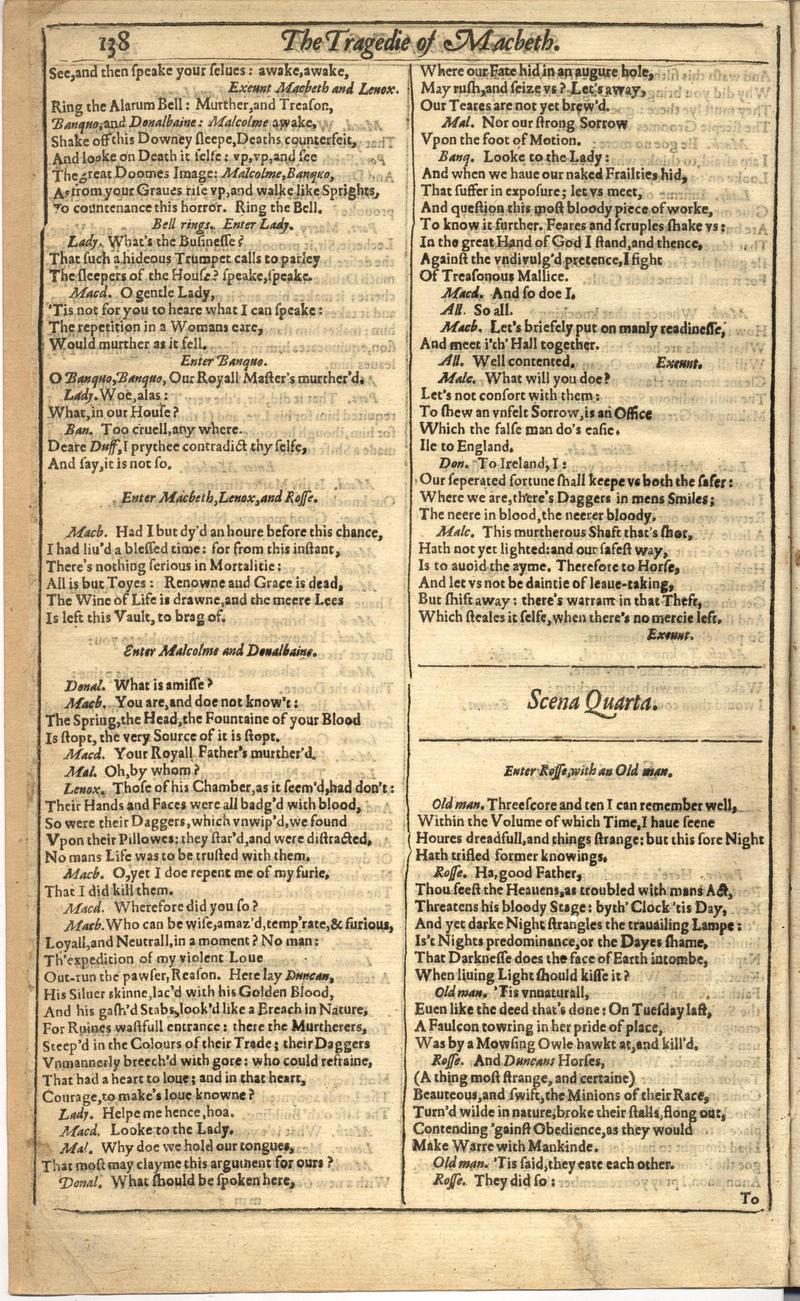 138
The Tragedie of Macbeth.
See, and then ſpeake your ſelues: awake, awake,
Exeunt Macbeth and Lenox.
Ring the Alarum Bell: Murther, and Treaſon,
Banquo, and Donalbaine: Malcolme awake,
Shake off this Downey ſleepe, Deaths counterfeit,
And looke on Death it ſelfe: vp, vp, and ſee
The great Doomes Image: Malcolme, Banquo,
As from your Graues riſe vp, and walke like Sprights,
To countenance this horror. Ring the Bell.
Bell rings. Enter Lady.
Lady. What's the Buſineſſe?
That ſuch a hideous Trumpet calls to parley
The ſleepers of the Houſe? ſpeake, ſpeake.
Macd. O gentle Lady,
'Tis not for you to heare what I can ſpeake:
The repetition in a Womans eare,
Would murther as it fell.
Enter Banquo.
O Banquo, Banquo, Our Royall Maſter's murther'd.
Lady. Woe, alas:
What, in our Houſe?
Ban. Too cruell, any where.
Deare Duff, I prythee contradict thy ſelfe,
And ſay, it is not ſo.
Enter Macbeth, Lenox, and Roſſe.
Macb. Had I but dy'd an houre before this chance,
I had liu'd a bleſſed time: for from this inſtant,
There's nothing ſerious in Mortalitie:
All is but Toyes: Renowne and Grace is dead,
The Wine of Life is drawne, and the meere Lees
Is left this Vault, to brag of.
Enter Malcolme and Donalbaine.
Donal. What is amiſſe?
Macb. You are, and doe not know't:
The Spring, the Head, the Fountaine of your Blood
Is ſtopt, the very Source of it is ſtopt.
Macd. Your Royall Father's murther'd.
Mal. Oh, by whom?
Lenox. Thoſe of his Chamber, as it ſeem'd, had don't:
Their Hands and Faces were all badg'd with blood,
So were their Daggers, which vnwip'd, we found
Vpon their Pillowes: they ſtar'd, and were diſtracted,
No mans Life was to be truſted with them.
Macb. O, yet I doe repent me of my furie,
That I did kill them.
Macd. Wherefore did you ſo?
Macb. Who can be wiſe, amaz'd, temp'rate, & furious,
Loyall, and Neutrall, in a moment? No man:
Th'expedition of my violent Loue
Out-run the pawſer, Reaſon. Here lay Duncan,
His Siluer skinne, lac'd with his Golden Blood,
And his gaſh'd Stabs, look'd like a Breach in Nature,
For Ruines waſtfull entrance: there the Murtherers,
Steep'd in the Colours of their Trade; their Daggers
Vnmannerly breech'd with gore: who could refraine,
That had a heart to loue; and in that heart,
Courage, to make's loue knowne?
Lady. Helpe me hence, hoa.
Macd. Looke to the Lady.
Mal. Why doe we hold our tongues,
That moſt may clayme this argument for ours?
Donal. What ſhould be ſpoken here,
Where our Fate hid in an augure hole,
May ruſh, and ſeize vs? Let's away,
Our Teares are not yet brew'd.
Mal. Nor our ſtrong Sorrow
Vpon the foot of Motion.
Banq. Looke to the Lady:
And when we haue our naked Frailties hid,
That ſuffer in expoſure; let vs meet,
And queſtion this moſt bloody piece of worke,
To know it further. Feares and ſcruples ſhake vs:
In the great Hand of God I ſtand, and thence,
Againſt the vndivulg'd pretence, I fight
Of Treaſonous Mallice.
Macd. And ſo doe I.
All. So all.
Macb. Let's briefely put on manly readineſſe,
And meet i'th' Hall together.
All. Well contented. Exeunt.
Malc. What will you doe?
Let's not conſort with them:
To ſhew an vnfelt Sorrow, is an Office
Which the falſe man do's eaſie.
Ile to England.
Don. To Ireland, I:
Our ſeperated fortune ſhall keepe vs both the ſafer:
Where we are, there's Daggers in mens Smiles;
The neere in blood, the neerer bloody.
Malc. This murtherous Shaft that's ſhot,
Hath not yet lighted: and our ſafeſt way,
Is to auoid the ayme. Therefore to Horſe,
And let vs not be daintie of leaue-taking,
But ſhift away: there's warrant in that Theft,
Which ſteales it ſelfe, when there's no mercie left.
Exeunt.
Scena Quarta.
Enter Roſſe, with an Old man.
Old man. Threeſcore and ten I can remember well,
Within the Volume of which Time, I haue ſeene
Houres dreadfull, and things ſtrange: but this ſore Night
Hath trifled former knowings.
Roſſe. Ha, good Father,
Thou ſeeſt the Heauens, as troubled with mans Act,
Threatens his bloody Stage: byth' Clock 'tis Day,
And yet darke Night ſtrangles the trauailing Lampe:
Is't Nights predominance, or the Dayes ſhame,
That Darkneſſe does the face of Earth intombe,
When liuing Light ſhould kiſſe it?
Old man. 'Tis vnnaturall,
Euen like the deed that's done: On Tueſday laſt,
A Faulcon towring in her pride of place,
Was by a Mowſing Owle hawkt at, and kill'd.
Roſſe. And Duncans Horſes,
(A thing moſt ſtrange, and certaine)
Beauteous, and ſwift, the Minions of their Race,
Turn'd wilde in nature, broke their ſtalls, flong out,
Contending 'gainſt Obedience, as they would
Make Warre with Mankinde.
Old man. 'Tis ſaid, they eate each other.
Roſſe. They did ſo:
To